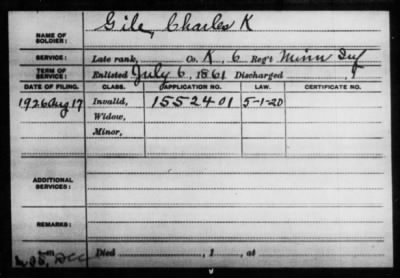 NAME OF SOLDIER: Gile, Charles K
SERVICE: Late rank, Co. K, 6 Reg't Minn Inf
TERM OF SERVICE: Enlisted July 6, 1861 Discharged , 1
DATE OF FILING. CLASS. APPLICATION NO. LAW. CERTIFICATE NO.
1926 Aug 17 Invalid, 1552401 5-1-20
Widow,
Minor,
ADDITIONAL SERVICES:
REMARKS:
Died , 1 , at